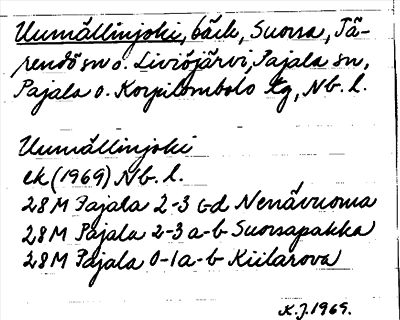 Uumällinjoki, bäck, Suorsa, Tä-
rendö sn o. Liviöjärvi, Pajala sn,
Pajala o. Korpilombolo tg, Nb. l.
Uumällinjoki
ek (1969) Nb. l.
28 M Pajala 2-3 c-d Nenävuoma
28 M Pajala 2-3 a-b Suorsapakka
28 M Pajala 0-1 a-b Kiilarova
K.J. 1969.